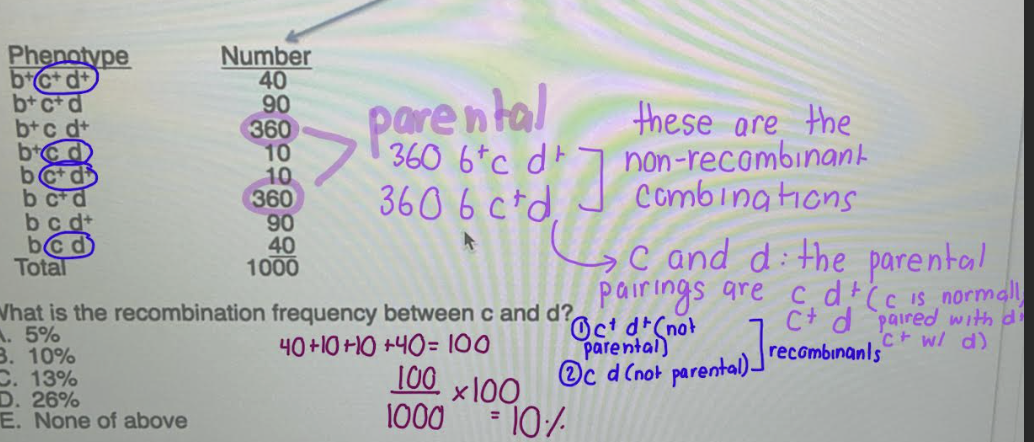 Phenotype Number
b+ c+ d+ 40
b+ c+ d 90
b+ c d+ 360
b+ c d 10
b c+ d+ 10
b c+ d 360
b c d+ 90
b c d 40
Total 1000
parental
360 b+ c d+
360 b c+ d
these are the
non-recombinant
combinations
c and d: the parental
pairings are c d+ (c is normally
c+ d paired with d+
c+ w/ d)
What is the recombination frequency between c and d?
A. 5%
B. 10%
C. 13%
D. 26%
E. None of above
40+10+10+40=100
100
1000
x100
=10%
① c+ d+ (not
parental)
② c d (not parental)
recombinants